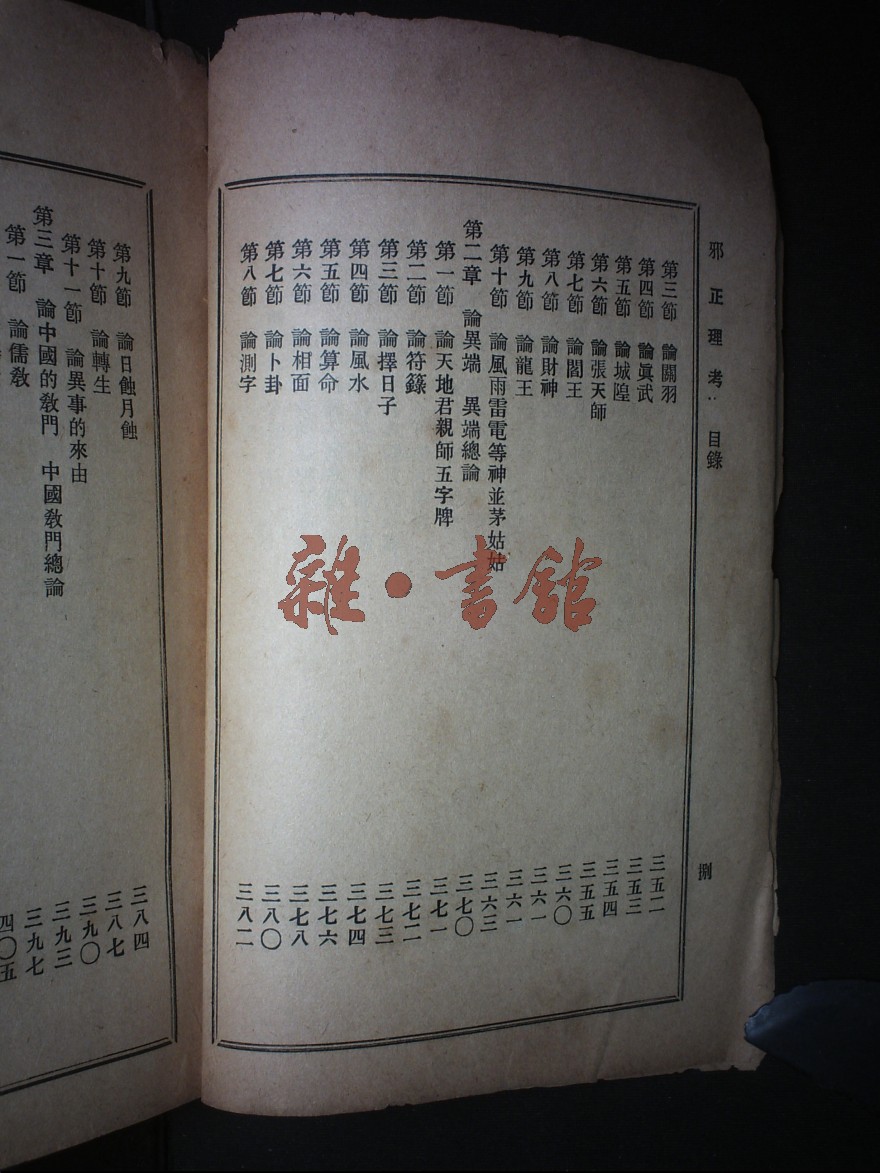 邪正理考：目錄
捌
第三節 論關羽 三五二
第四節 論眞武 三五三
第五節 論城隍 三五四
第六節 論張天師 三五五
第七節 論閻王 三六〇
第八節 論財神 三六一
第九節 論龍王 三六一
第十節 論風雨雷電等神並茅姑姑 三六三
第二章 論異端 異端總論 三七〇
第一節 論天地君親師五字牌 三七一
第二節 論符籙 三七二
第三節 論擇日子 三七三
第四節 論風水 三七四
第五節 論算命 三七六
第六節 論相面 三七八
第七節 論卜卦 三八〇
第八節 論測字 三八二
第九節 論日蝕月蝕 三八四
第十節 論轉生 三八七
第十一節 論異事的來由 三九〇
第三章 論中國的敎門 中國敎門總論 三九三
第一節 論儒敎 三九七
四〇五
雜·書館